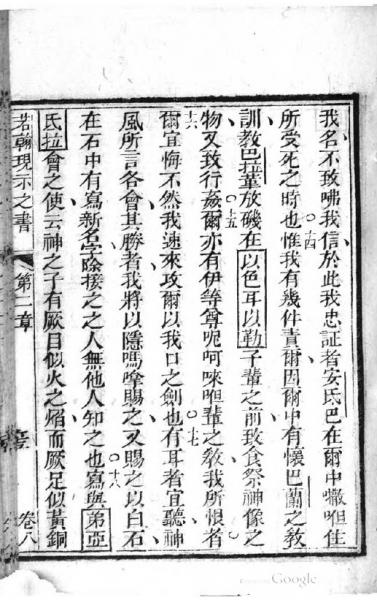 我名不致咈我信於此我忠証者安氐巴在爾中撒呾住
所受死之時也十四惟我有幾件責爾因爾中有懷巴蘭之教
訓教巴拉輩放磯在以色耳以勒子輩之前致食祭神像之
物又致行姦十五爾亦有伊等尊呢呵唻呾輩之教我所恨者
十六爾宜悔不然我速來攻爾以我口之劍也十七有耳者宜聽神
風所言各會其勝者我將以隱嗎㗚賜之又賜之以白石
在石中有寫新名字除接之之人無他人知之也十八寫與弟亞
氐拉會之使云神之子有厥目似火之焰而厥足似黃銅
若翰現示之書 第二章 卷八
Google